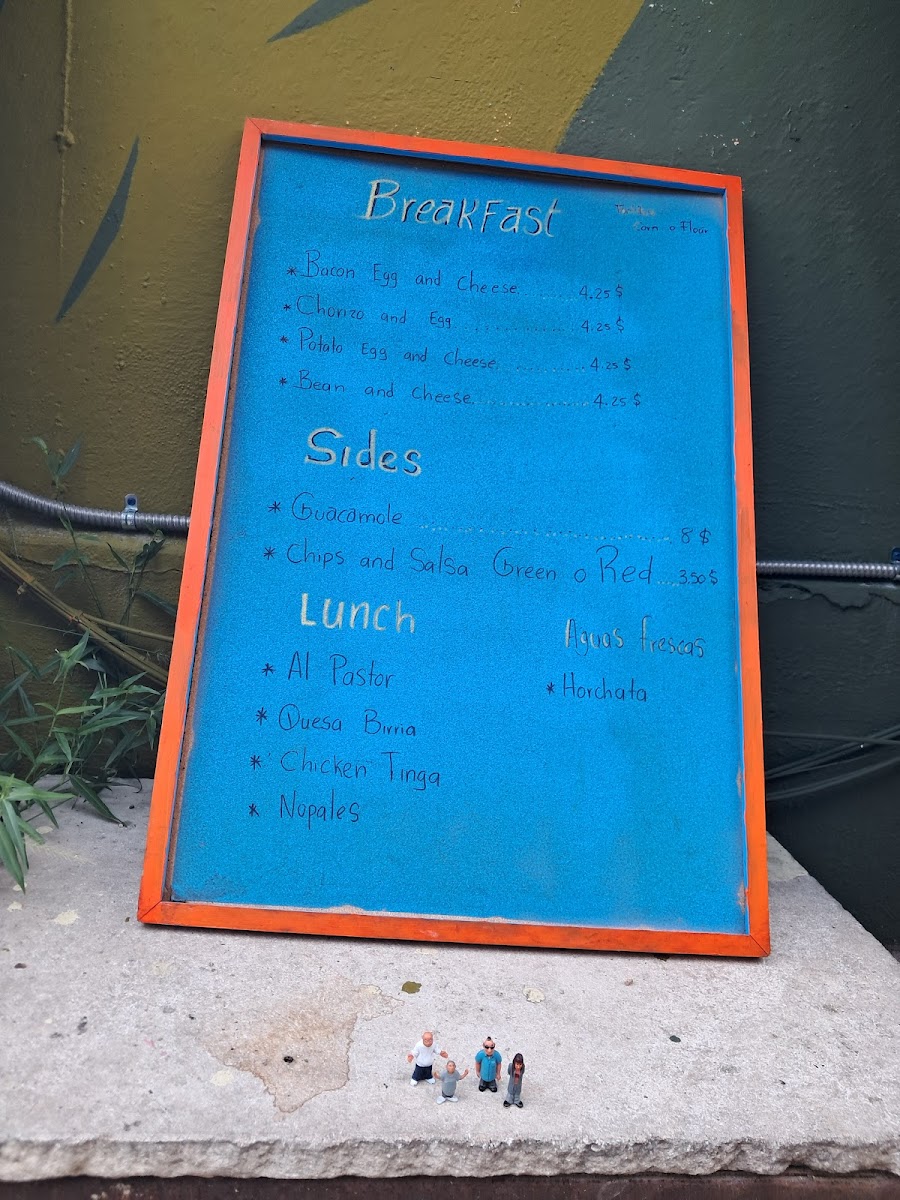 Breakfast
Corn o Flour
* Bacon Egg and Cheese ........ 4.25 $
* Chorizo and Egg ................ 4.25 $
* Potato Egg and Cheese ............... 4.25 $
* Bean and Cheese .................. 4.25 $
Sides
* Guacamole ................................ 8 $
* Chips and Salsa Green o Red .... 3.50 $
Lunch
* Al Pastor
* Quesa Birria
* Chicken Tinga
* Nopales
Aguas frescas
* Horchata